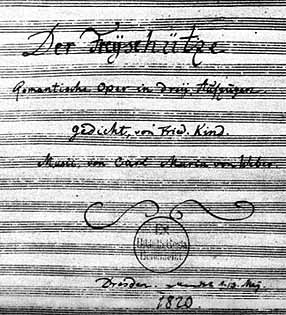 Der Freyschütze
Romantische Oper in drey Aufzügen.
gedicht, von Fried. Kind.
Musik von Carl Maria von Weber
EX
Dresden
May.
1820.